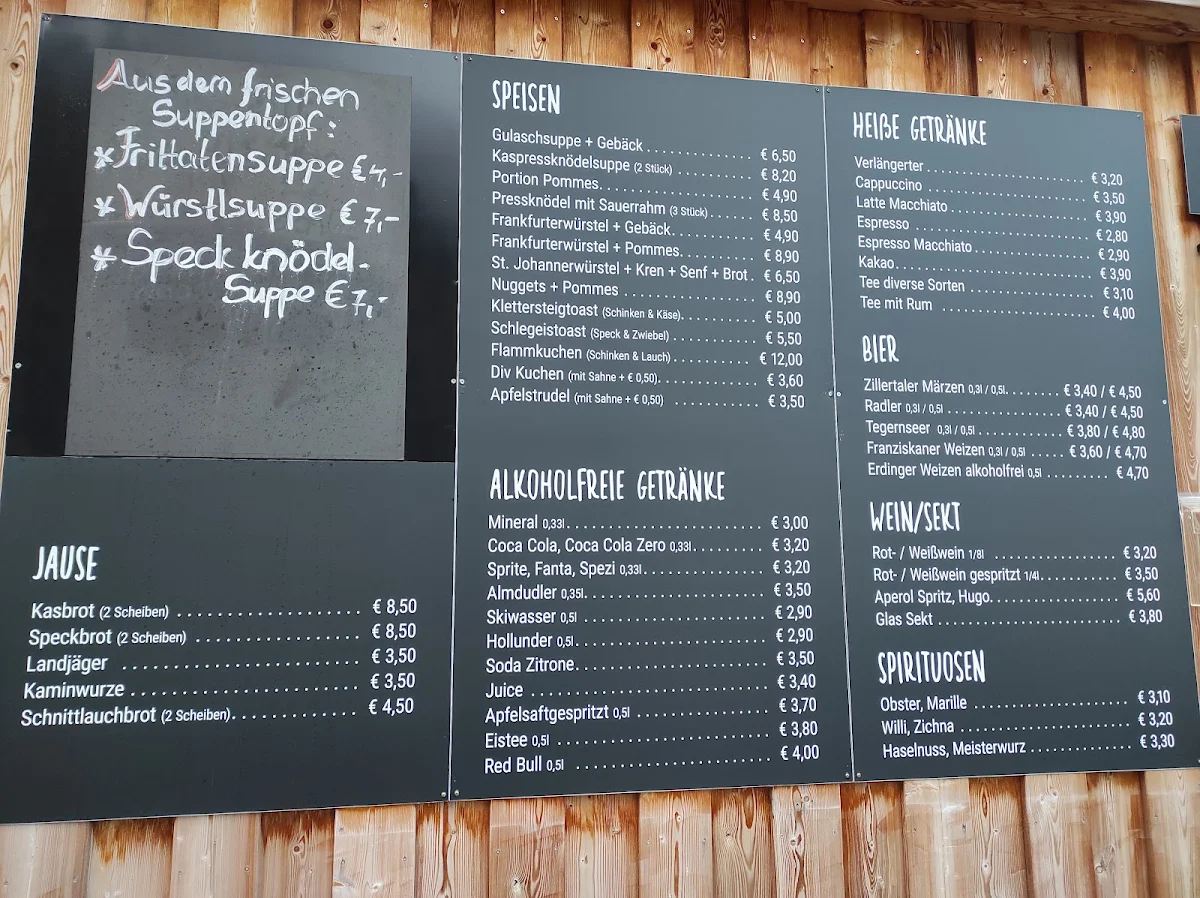 Aus dem frischen
Suppentopf:
* Frittatensuppe € 4,-
* Würstlsuppe € 7,-
* Speckknödel-
Suppe € 7,-
JAUSE
Kasbrot (2 Scheiben) € 8,50
Speckbrot (2 Scheiben) € 8,50
Landjäger € 3,50
Kaminwurze € 3,50
Schnittlauchbrot (2 Scheiben) € 4,50
SPEISEN
Gulaschsuppe + Gebäck € 6,50
Kaspressknödelsuppe (2 Stück) € 8,20
Portion Pommes € 4,90
Pressknödel mit Sauerrahm (3 Stück) € 8,50
Frankfurterwürstel + Gebäck € 4,90
Frankfurterwürstel + Pommes € 8,90
St. Johannerwürstel + Kren + Senf + Brot € 6,50
Nuggets + Pommes € 8,90
Klettersteigtoast (Schinken & Käse) € 5,00
Schlegeistoast (Speck & Zwiebel) € 5,50
Flammkuchen (Schinken & Lauch) € 12,00
Div Kuchen (mit Sahne + € 0,50) € 3,60
Apfelstrudel (mit Sahne + € 0,50) € 3,50
ALKOHOLFREIE GETRÄNKE
Mineral 0,33l € 3,00
Coca Cola, Coca Cola Zero 0,33l € 3,20
Sprite, Fanta, Spezi 0,33l € 3,20
Almdudler 0,35l € 3,50
Skiwasser 0,5l € 2,90
Hollunder 0,5l € 2,90
Soda Zitrone € 3,50
Juice € 3,40
Apfelsaftgespritzt 0,5l € 3,70
Eistee 0,5l € 3,80
Red Bull 0,5l € 4,00
HEIßE GETRÄNKE
Verlängerter € 3,20
Cappuccino € 3,50
Latte Macchiato € 3,90
Espresso € 2,80
Espresso Macchiato € 2,90
Kakao € 3,90
Tee diverse Sorten € 3,10
Tee mit Rum € 4,00
BIER
Zillertaler Märzen 0,3l / 0,5l € 3,40 / € 4,50
Radler 0,3l / 0,5l € 3,40 / € 4,50
Tegernseer 0,3l / 0,5l € 3,80 / € 4,80
Franziskaner Weizen 0,3l / 0,5l € 3,60 / € 4,70
Erdinger Weizen alkoholfrei 0,5l € 4,70
WEIN/SEKT
Rot- / Weißwein 1/8l € 3,20
Rot- / Weißwein gespritzt 1/4l € 3,50
Aperol Spritz, Hugo € 5,60
Glas Sekt € 3,80
SPIRITUOSEN
Obster, Marille € 3,10
Willi, Zichna € 3,20
Haselnuss, Meisterwurz € 3,30